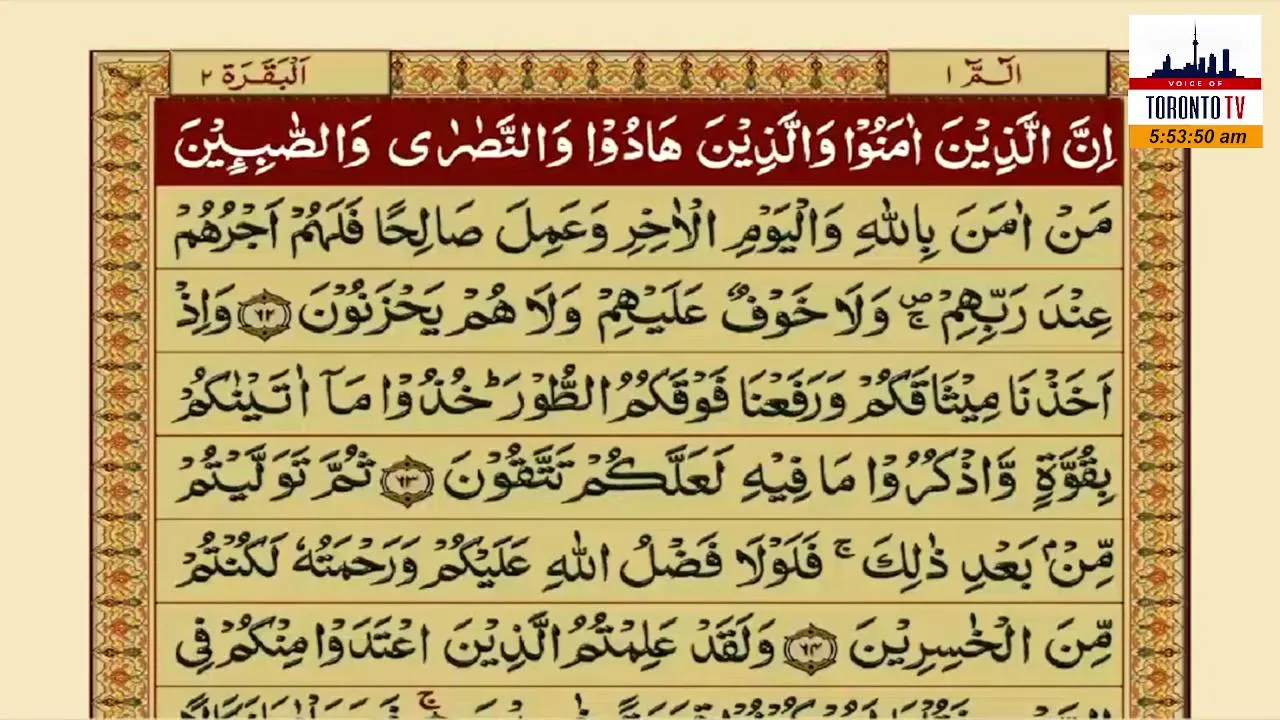 اَلْبَقَرَة ٢
الٓمّٓ ١
VOICE OF
TORONTO TV
5:53:50 am
اِنَّ الَّذِيْنَ اٰمَنُوْا وَالَّذِيْنَ هَادُوْا وَالنَّصٰرٰى وَالصّٰبِـِٕيْنَ
مَنْ اٰمَنَ بِاللّٰهِ وَالْيَوْمِ الْاٰخِرِ وَعَمِلَ صَالِحًا فَلَهُمْ اَجْرُهُمْ
عِنْدَ رَبِّهِمْ ۪ۚ وَلَا خَوْفٌ عَلَيْهِمْ وَلَا هُمْ يَحْزَنُوْنَ ﴿٦٢﴾ وَاِذْ
اَخَذْنَا مِيْثَاقَكُمْ وَرَفَعْنَا فَوْقَكُمُ الطُّوْرَ ؕ خُذُوْا مَاۤ اٰتَيْنٰكُمْ
بِقُوَّةٍ وَّاذْكُرُوْا مَا فِيْهِ لَعَلَّكُمْ تَتَّقُوْنَ ﴿٦٣﴾ ثُمَّ تَوَلَّيْتُمْ
مِّنْۢ بَعْدِ ذٰلِكَ ۚ فَلَوْلَا فَضْلُ اللّٰهِ عَلَيْكُمْ وَرَحْمَتُهٗ لَكُنْتُمْ
مِّنَ الْخٰسِرِيْنَ ﴿٦٤﴾ وَلَقَدْ عَلِمْتُمُ الَّذِيْنَ اعْتَدَوْا مِنْكُمْ فِى